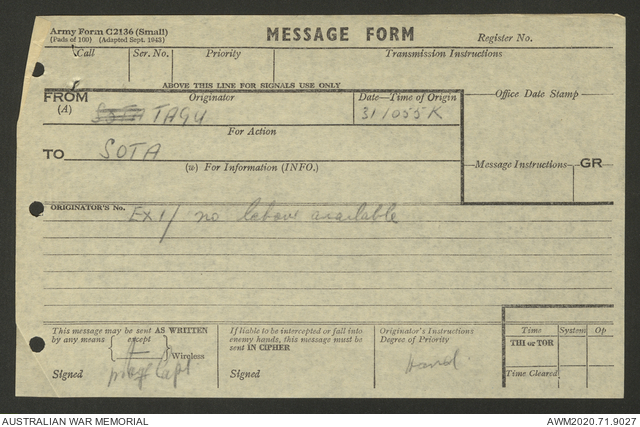 Army Form C2136 (Small)
(Pads of 100) (Adapted Sept. 1943)
MESSAGE FORM
Register No.
Call
Ser. No.
Priority
Transmission Instructions
ABOVE THIS LINE FOR SIGNALS USE ONLY
FROM
(A)
Originator
Date—Time of Origin
Office Date Stamp
TAGU
31/055K
For Action
TO
SOTA
(w) For Information (INFO.)
Message Instructions
GR
ORIGINATOR'S No.
EX1/ no labour available
This message may be sent AS WRITTEN
by any means
except
Wireless
Signed
Capt
If liable to be intercepted or fall into
enemy hands, this message must be
sent IN CIPHER
Signed
Originator's Instructions
Degree of Priority
Hand
Time
System
Op
THI or TOR
Time Cleared
AUSTRALIAN WAR MEMORIAL
AWM2020.71.9027